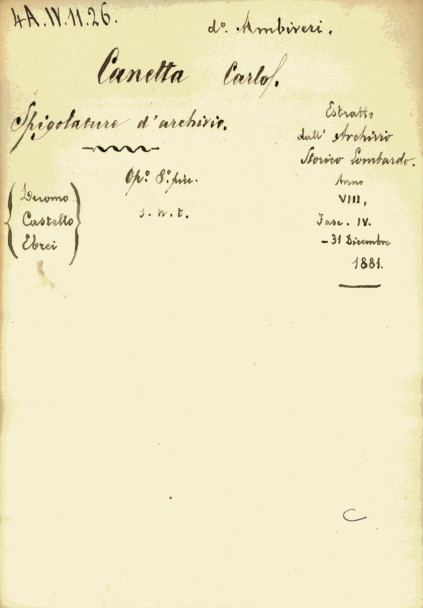 4A.IV.11.26.
d.º Ambiveri.
Canetta Carlo.
Spigolature d'archivio.
Op.º 8.º picc.
s. n. t.
Duomo
Castello
Ebrei
Estratto
dall' Archivio
Storico Lombardo.
Anno
VIII,
Fasc. IV.
- 31 Dicembre
1881.
C